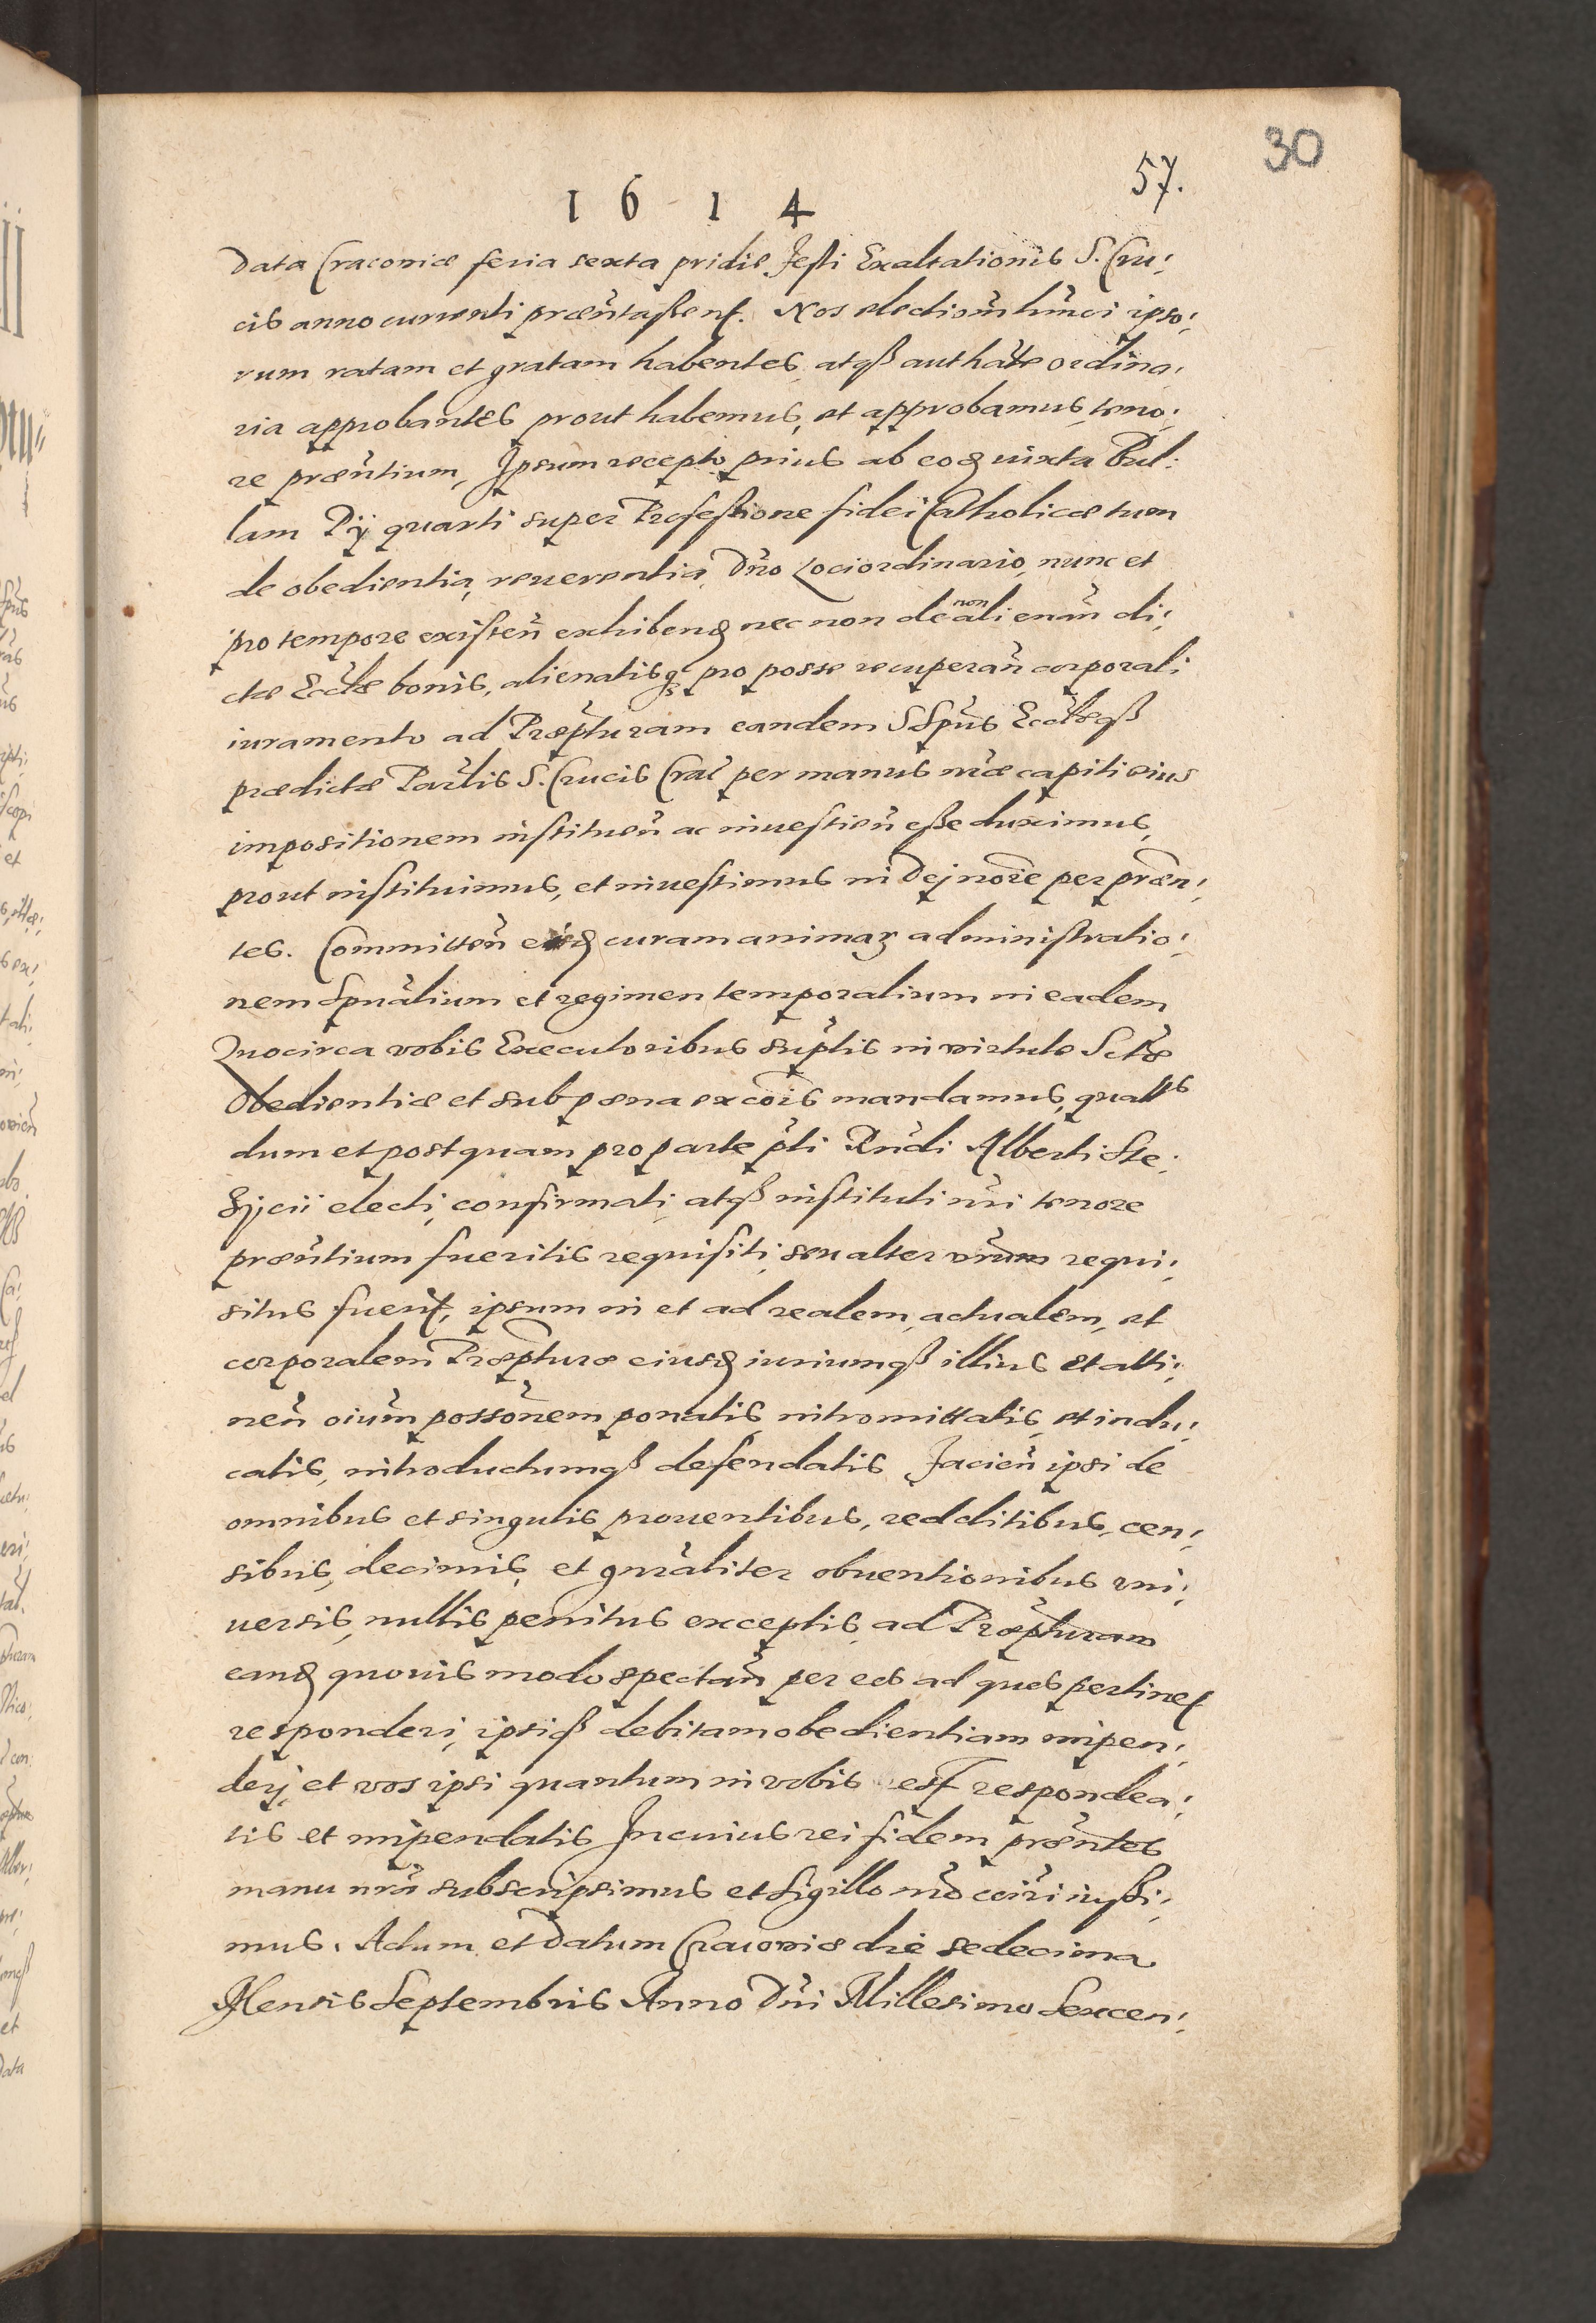 30
57.
1 6 1 4
Data Cracoviæ feria sexta pridie Festi Exaltationis S. Cru:
cis anno currenti præñtassent. Nos electioñ hm̃oi ipso:
rum ratam et gratam habentes, atqꝫ autħate ordina:
ria approbantes prout habemus, et approbamus, teno:
re præñtium, Ipsum recepto prius ab eod iuxta Bul:
lam Pij quarti super Professione fidei Catholicæ tum
de obedientia, reuerentia Dño Lociordinario, nunc et
pro tempore existeñ exhibend nec non de non alienañ di:
ctæ Eccłæ bonis, alienatisq pro posse recuperañ corporali
iuramento ad Præp̃turam eandem S Sp̃us Eccłæqꝫ
prædictæ Par̃lis S. Crucis Crac̃ per manus nr̃æ capiti eius
impositionem instituen̄ ac inuestien̄ esse duximus,
prout instituimus, et inuestimus in Dej nom̃e per præñ:
tes. Committeñ eid curam animaꝝ administratio:
nem Spũalium et regimen temporalium in eadem
Quocirca vobis Executoribus sup̃tis in virtute Sctæ
Obedientiæ et sub pœna excõis mandamus, quatts
dum et postquam pro parte p̃ti Rñdi Alberti Ste:
Zÿcii electi, confirmati, atqꝫ instituti ñri tenore
præñtium fueritis requisiti, seu alter vr̃um requi:
situs fuerit, ipsum in et ad realem, actualem, et
corporalem Præp̃turæ eiusd iuriumqꝫ illius et atti:
neñ oium̃ possõnem ponatis, intromittatis, et indu:
catis, introductumqꝫ defendatis Facieñ ipsi de
omnibus et singulis prouentibus, redditibus, cen:
sibus, decimis, et gñraliter obuentionibus vni:
uersis, nullis penitus exceptis, ad Præp̃turam
eand quouis modo spectañ per eos ad quos pertinet
responderi, ipsiqꝫ debitam obedientiam impen:
dej, et vos ipsi quantum in vobis est respondea:
tis et impendatis In cuius rei fidem præñtes
manu nr̃a subscripsimus et Sigillo nr̃o coĩri iussi:
mus. Actum et Datum Cracoviæ die sedecima
Mensis Septembris Anno Dñi Millesimo Sexcen: